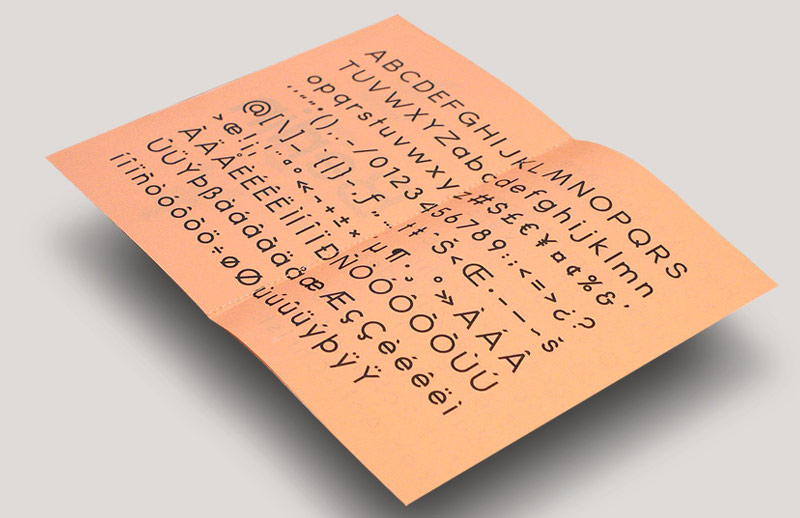 ABCDEFGHIJKLMNOPQRS
TUVWXYZabcdefghijklmn
opqrstuvwxyz#$£€¥¤¢%&
(),.–/0123456789:;<=>¿?
@[\]_`{|}~,ƒ„…†‡ˆŠ‹Œ·–—~š
›œ!¡¦¨ªº«¬+±×µ¶·¸°»ÀÁÂ
ÃÄÅÈÉÊËÌÍÎÏÐÑÒÓÔÕÖÙÚ
ÛÜÝÞßàáâãäåæÆçÇèéêëì
íîïñòóôõö÷øØùúûüýþÿŸ